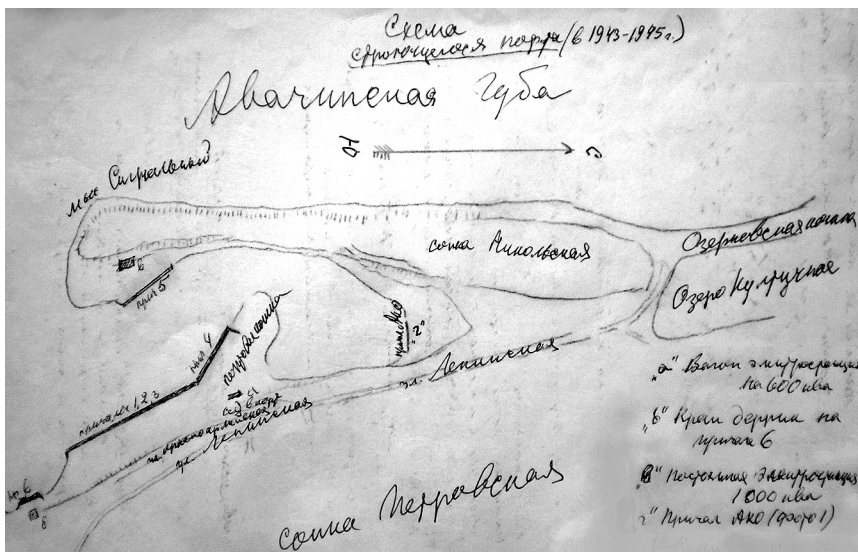 Схема
строющегося порта (в 1943-1945г.)
Авачинская губа
Ю
С
мыс Сигнальный
сопка Никольская
Озерновская кошка
Озеро Култучное
в
прич 5
прич 4
причал АКО
"г"
ул. Ленинская
причалы 1,2,3
ул. Красноармейская
ул. Ленинская
пр. 6
б
сопка Петровская
"а" Вагон электростанция
на 600 ква
"б" Кран деррик на
причал 6
"в" Постоянная электростанция
1000 ква
"г" Причал АКО (фото 1)